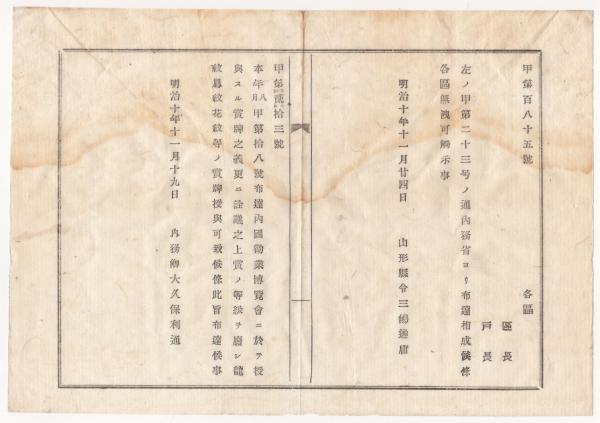 甲第百八十五號
各區
區長
戸長
左ノ甲第二十三号ノ通内務省ヨリ布達相成候條
各區無洩可觸示事
明治十年十一月廿四日
山形縣令三島通庸
甲第貳拾三號
本年八月甲第拾八號布達内國勸業博覽會ニ於テ授
與スル賞牌之義更ニ詮議之上賞ノ等級ヲ廢シ龍
紋鳳紋花紋等ノ賞牌授與可致候條此旨布達候事
明治十年十一月十九日
内務卿大久保利通